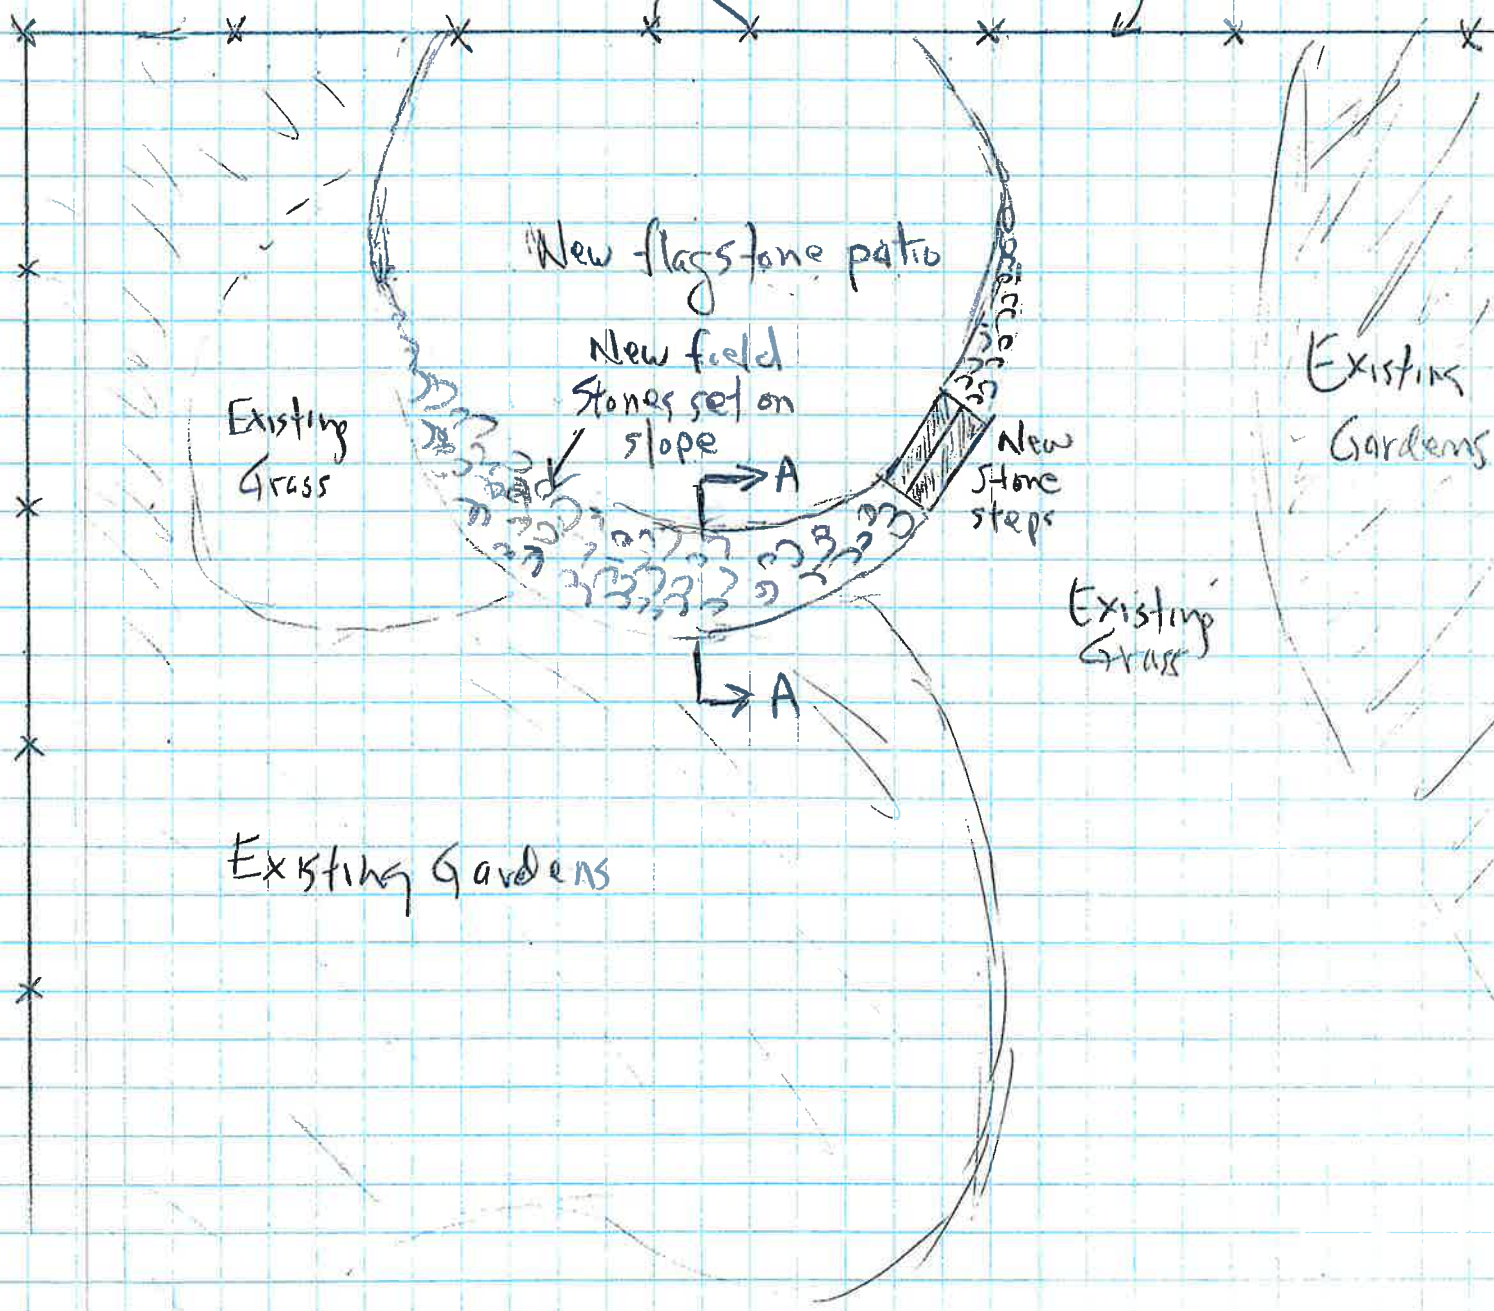 New flagstone patio
New field
Stones set on
slope
Existing
Grass
A
New
Stone
steps
Existing
Gardens
Existing
Grass
A
Existing Gardens